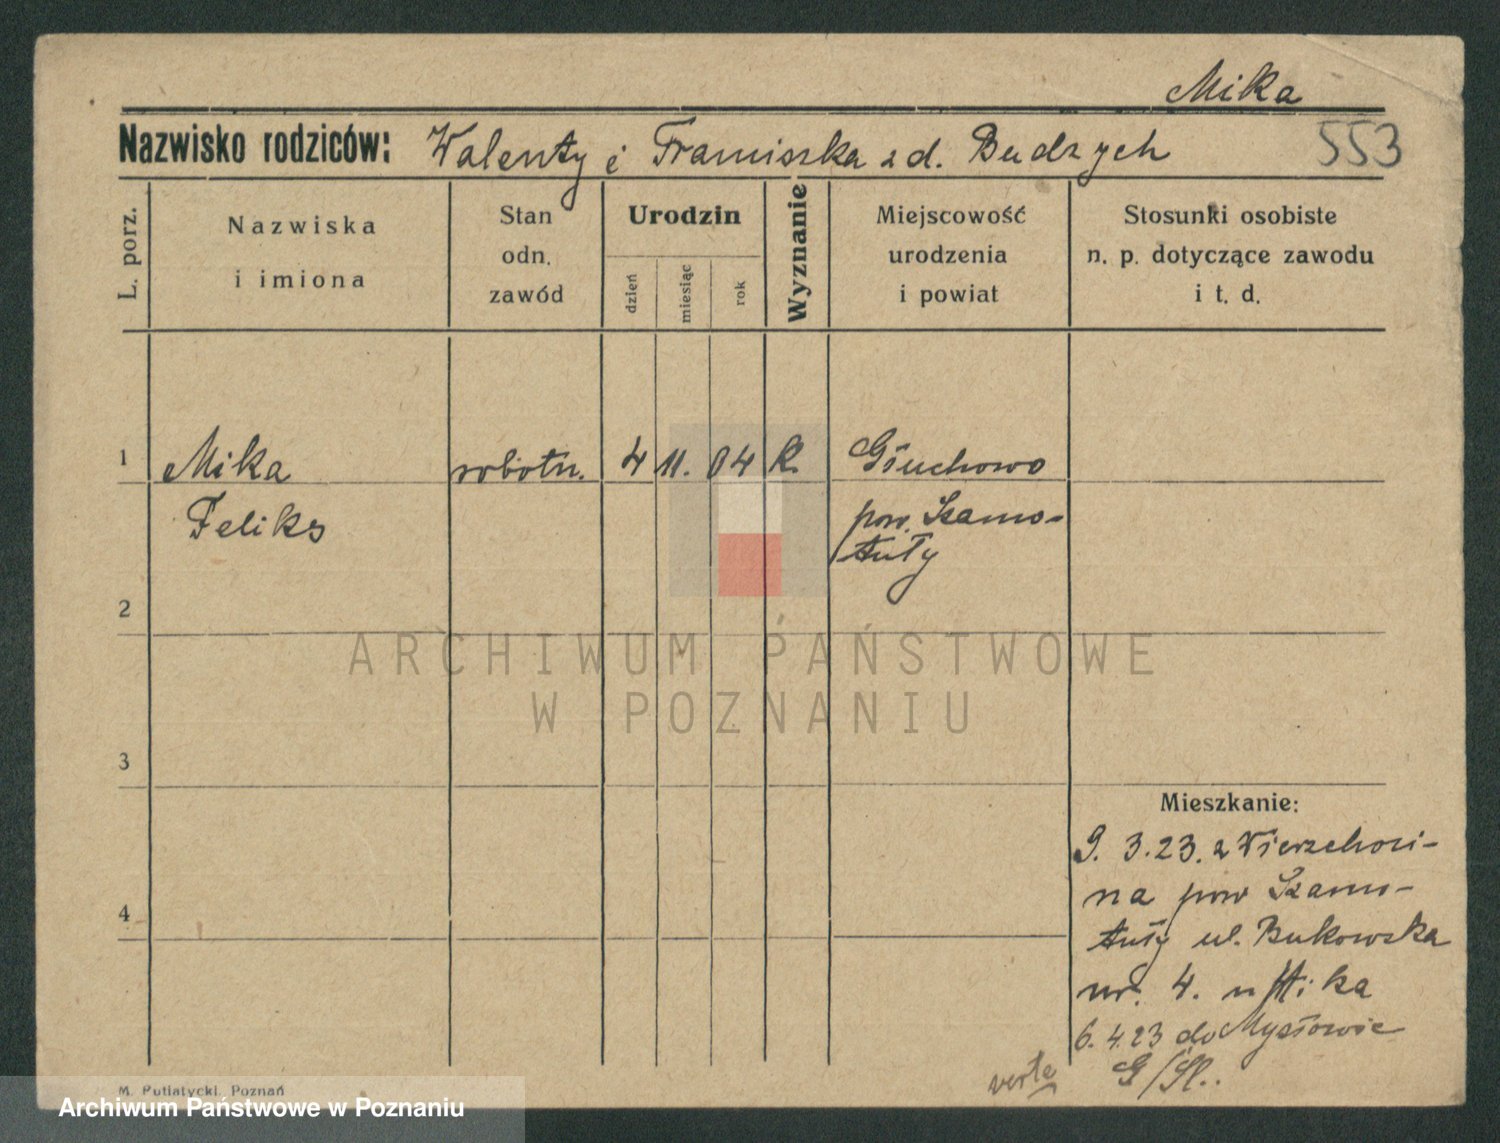 Mika
Nazwisko rodziców: Walenty i Franciszka z d. Budzych
553
L. porz.
Nazwiska
i imiona
Stan
odn.
zawód
Urodzin
dzień
miesiąc
rok
Wyznanie
Miejscowość
urodzenia
i powiat
Stosunki osobiste
n. p. dotyczące zawodu
i t. d.
1 Mika robotn. 4 11. 04 k. Głuchowo
Feliks pow. Szamo-
tuły
2
ARCHIWUM PAŃSTWOWE
W POZNANIU
3
Mieszkanie:
9. 3.23. z Wierzchoci-
na pow Szamo-
4
tuły ul. Bukowska
nr. 4. u Mika
6. 4.23 do Mysłowic
G/Śl..
verte
M. Putiatycki, Poznań
Archiwum Państwowe w Poznaniu